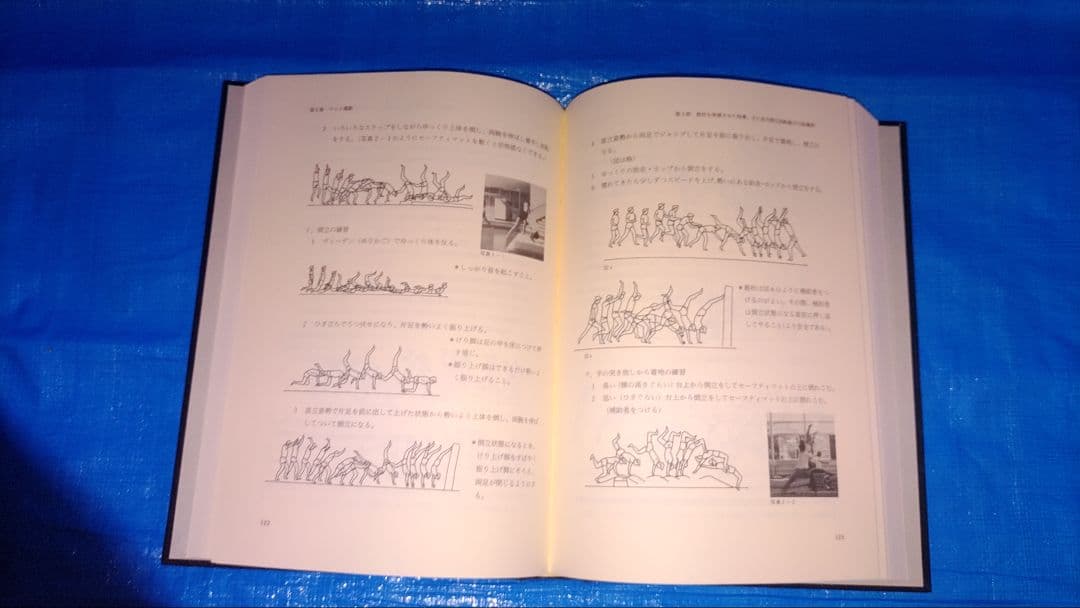 第2章 マット運動
2 いろいろなステップをしながらゆっくり上体を倒し、両腕を
をする。(写真2-1のようにセーフティマットを敷くと恐怖感なくできる。)
写真2-1
イ. 倒立の練習
1 ヴィーゲン(ゆりかご)でゆっくり体を反る。
＊しっかり首を起こすこと。
2 ひざ立ちでうつ伏せになり、片足を勢いよく振り上げる。
＊けり脚は足の甲を床につけて押
す感じ。
＊振り上げ脚はできるだけ勢いよ
く振り上げること。
3 直立姿勢で片足を前に出して上げた状態から勢いよく上体を倒し、両腕を伸ば
してついて倒立になる。
＊倒立状態になるとき、
けり上げ脚をすばやく
振り上げ脚にそろえ、
両足が閉じるようにす
る。
122
4 直立姿勢から両足でジャンプして片足を前に振り出し、片足で着地し、倒立に
なる。
(図は略)
5 ゆっくりの助走・ホップから倒立をする。
6 慣れてきたら少しずつスピードを上げ、勢いのある助走・ホップから倒立をする。
＊最初は図4のように補助者をつ
けるのがよい。その際、補助者
は倒立状態になる直前に押し返
してやること(より安全である)。
図4
ウ. 手の突き放しから着地の練習
1 高い(腰の高さぐらい)台上から倒立をしてセーフティマットの上に倒れこむ。
2 低い(ひざぐらい)台上から倒立をしてセーフティマットの上に倒れこむ。
(補助者をつける)
写真2-2
123